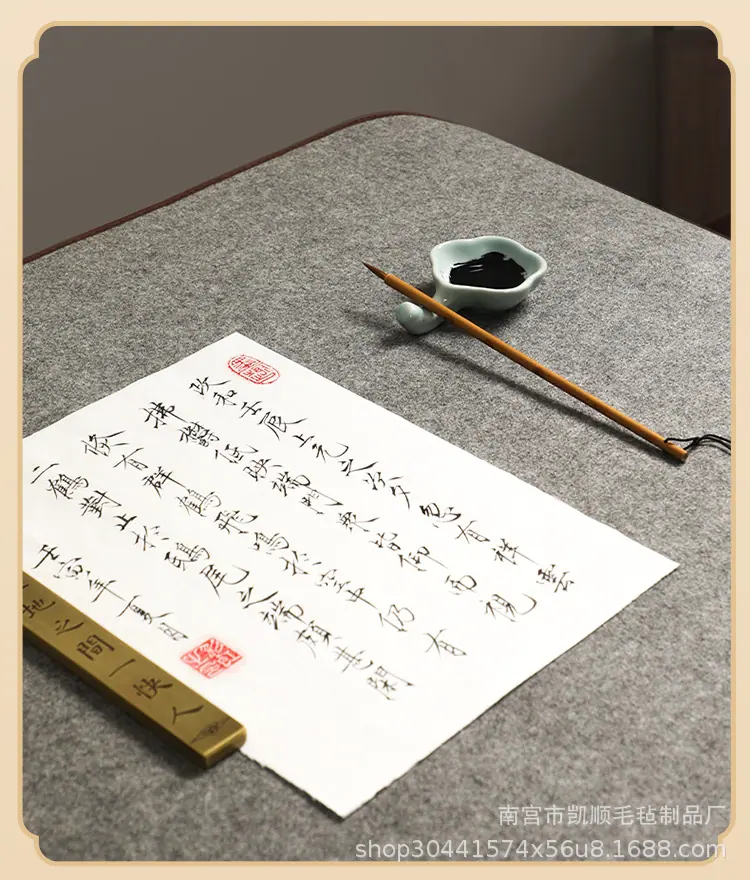 政和壬辰上元之次夕忽有祥雲
拂鬱低映端門眾皆仰而視
倏有群鶴飛鳴於空中仍有
二鶴對止於鴟尾之端頗甚閑
壬寅年夏月
地之間一快人
南宫市凯顺毛毡制品厂
shop30441574x56u8.1688.com